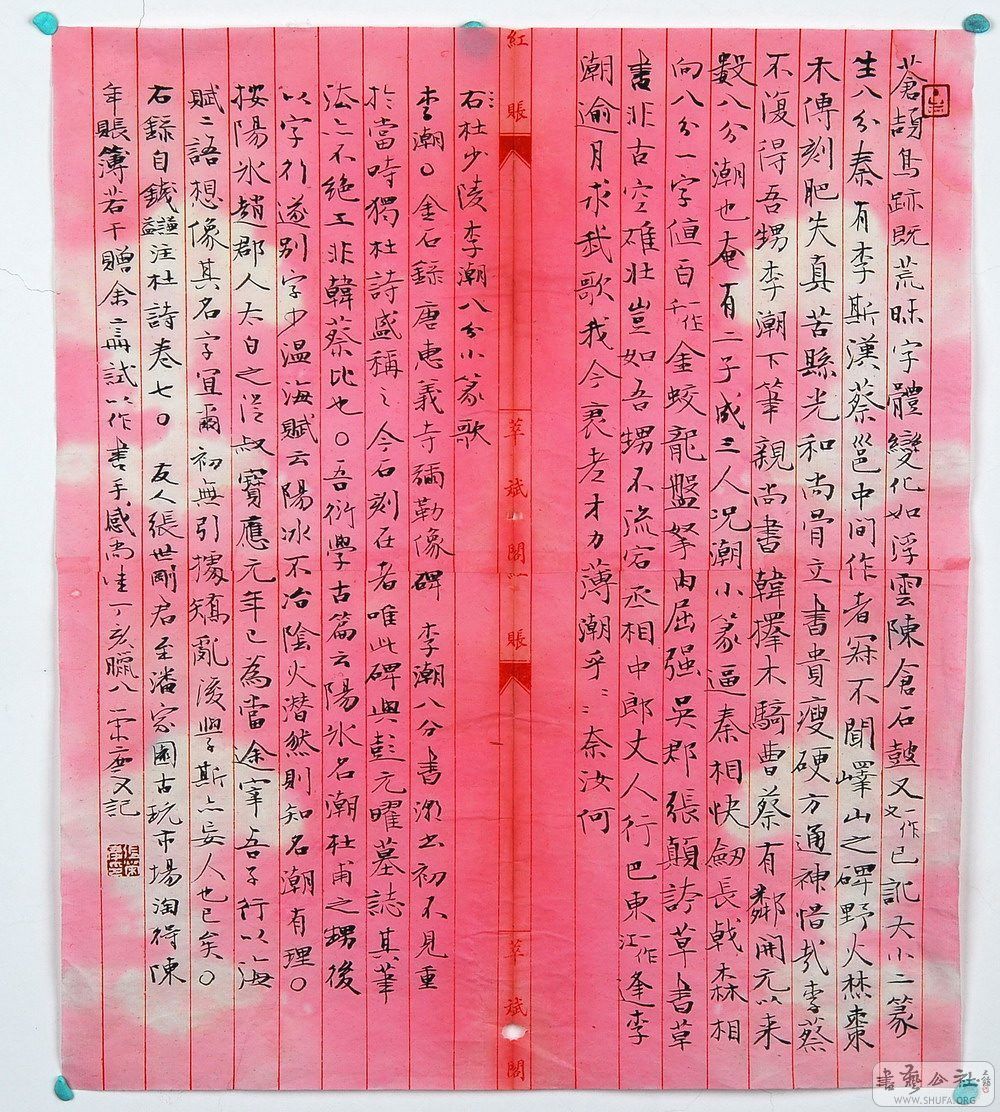 蒼頡鳥跡既荒昧字體變化如浮雲陳倉石鼓又一作文已訛大小二篆
生八分秦有李斯漢蔡邕中間作者寂不聞嶧山之碑野火焚棗
木傳刻肥失真苦縣光和尚骨立書貴瘦硬方通神惜哉李蔡
不復得吾甥李潮下筆親尚書韓擇木騎曹蔡有鄰開元以來
數八分潮也奄有二子成三人況潮小篆逼秦相快劍長戟森相
向八分一字值百一作千金蛟龍盤拏肉屈强吳郡張顛誇草書草
書非古空雄壯豈如吾甥不流宕丞相中郎丈人行巴東一作江逢李
潮逾月求我歌我今衰老才力薄潮乎〻奈汝何
紅 賬 萃 斌 閣 紅 賬 萃 斌 閣
右杜少陵李潮八分小篆歌
李潮〇金石錄唐惠義寺彌勒像碑 李潮八分書潮書初不見重
於當時獨杜詩盛稱之今石刻在者唯此碑與彭元曜墓誌其筆
法亦不絕工非韓蔡比也〇吾衍學古篇云陽冰名潮杜甫之甥後
以字行遂別字少溫海賦云陽冰不冶陰火潛然則知名潮有理〇
按陽冰趙郡人太白之從叔寶應元年已為當塗宰吾子行以海
賦二語想像其名字宜爾初無引據矯亂後學斯亦妄人也已矣〇
右錄自錢謙益注杜詩卷七〇 友人張世剛君至潘家園古玩市場淘得陳
年賬簿若干贈余二冊試以作書手感尚佳丁亥臘八 又記
書藝公社
WWW.SHUFA.ORG